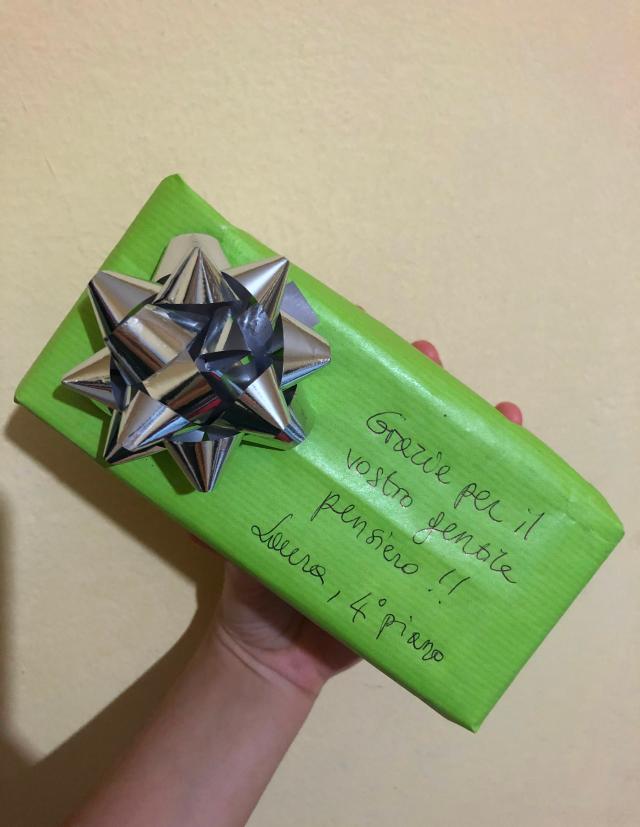 Grazie per il
vostro gentile
pensiero !!
Laura, 4° piano